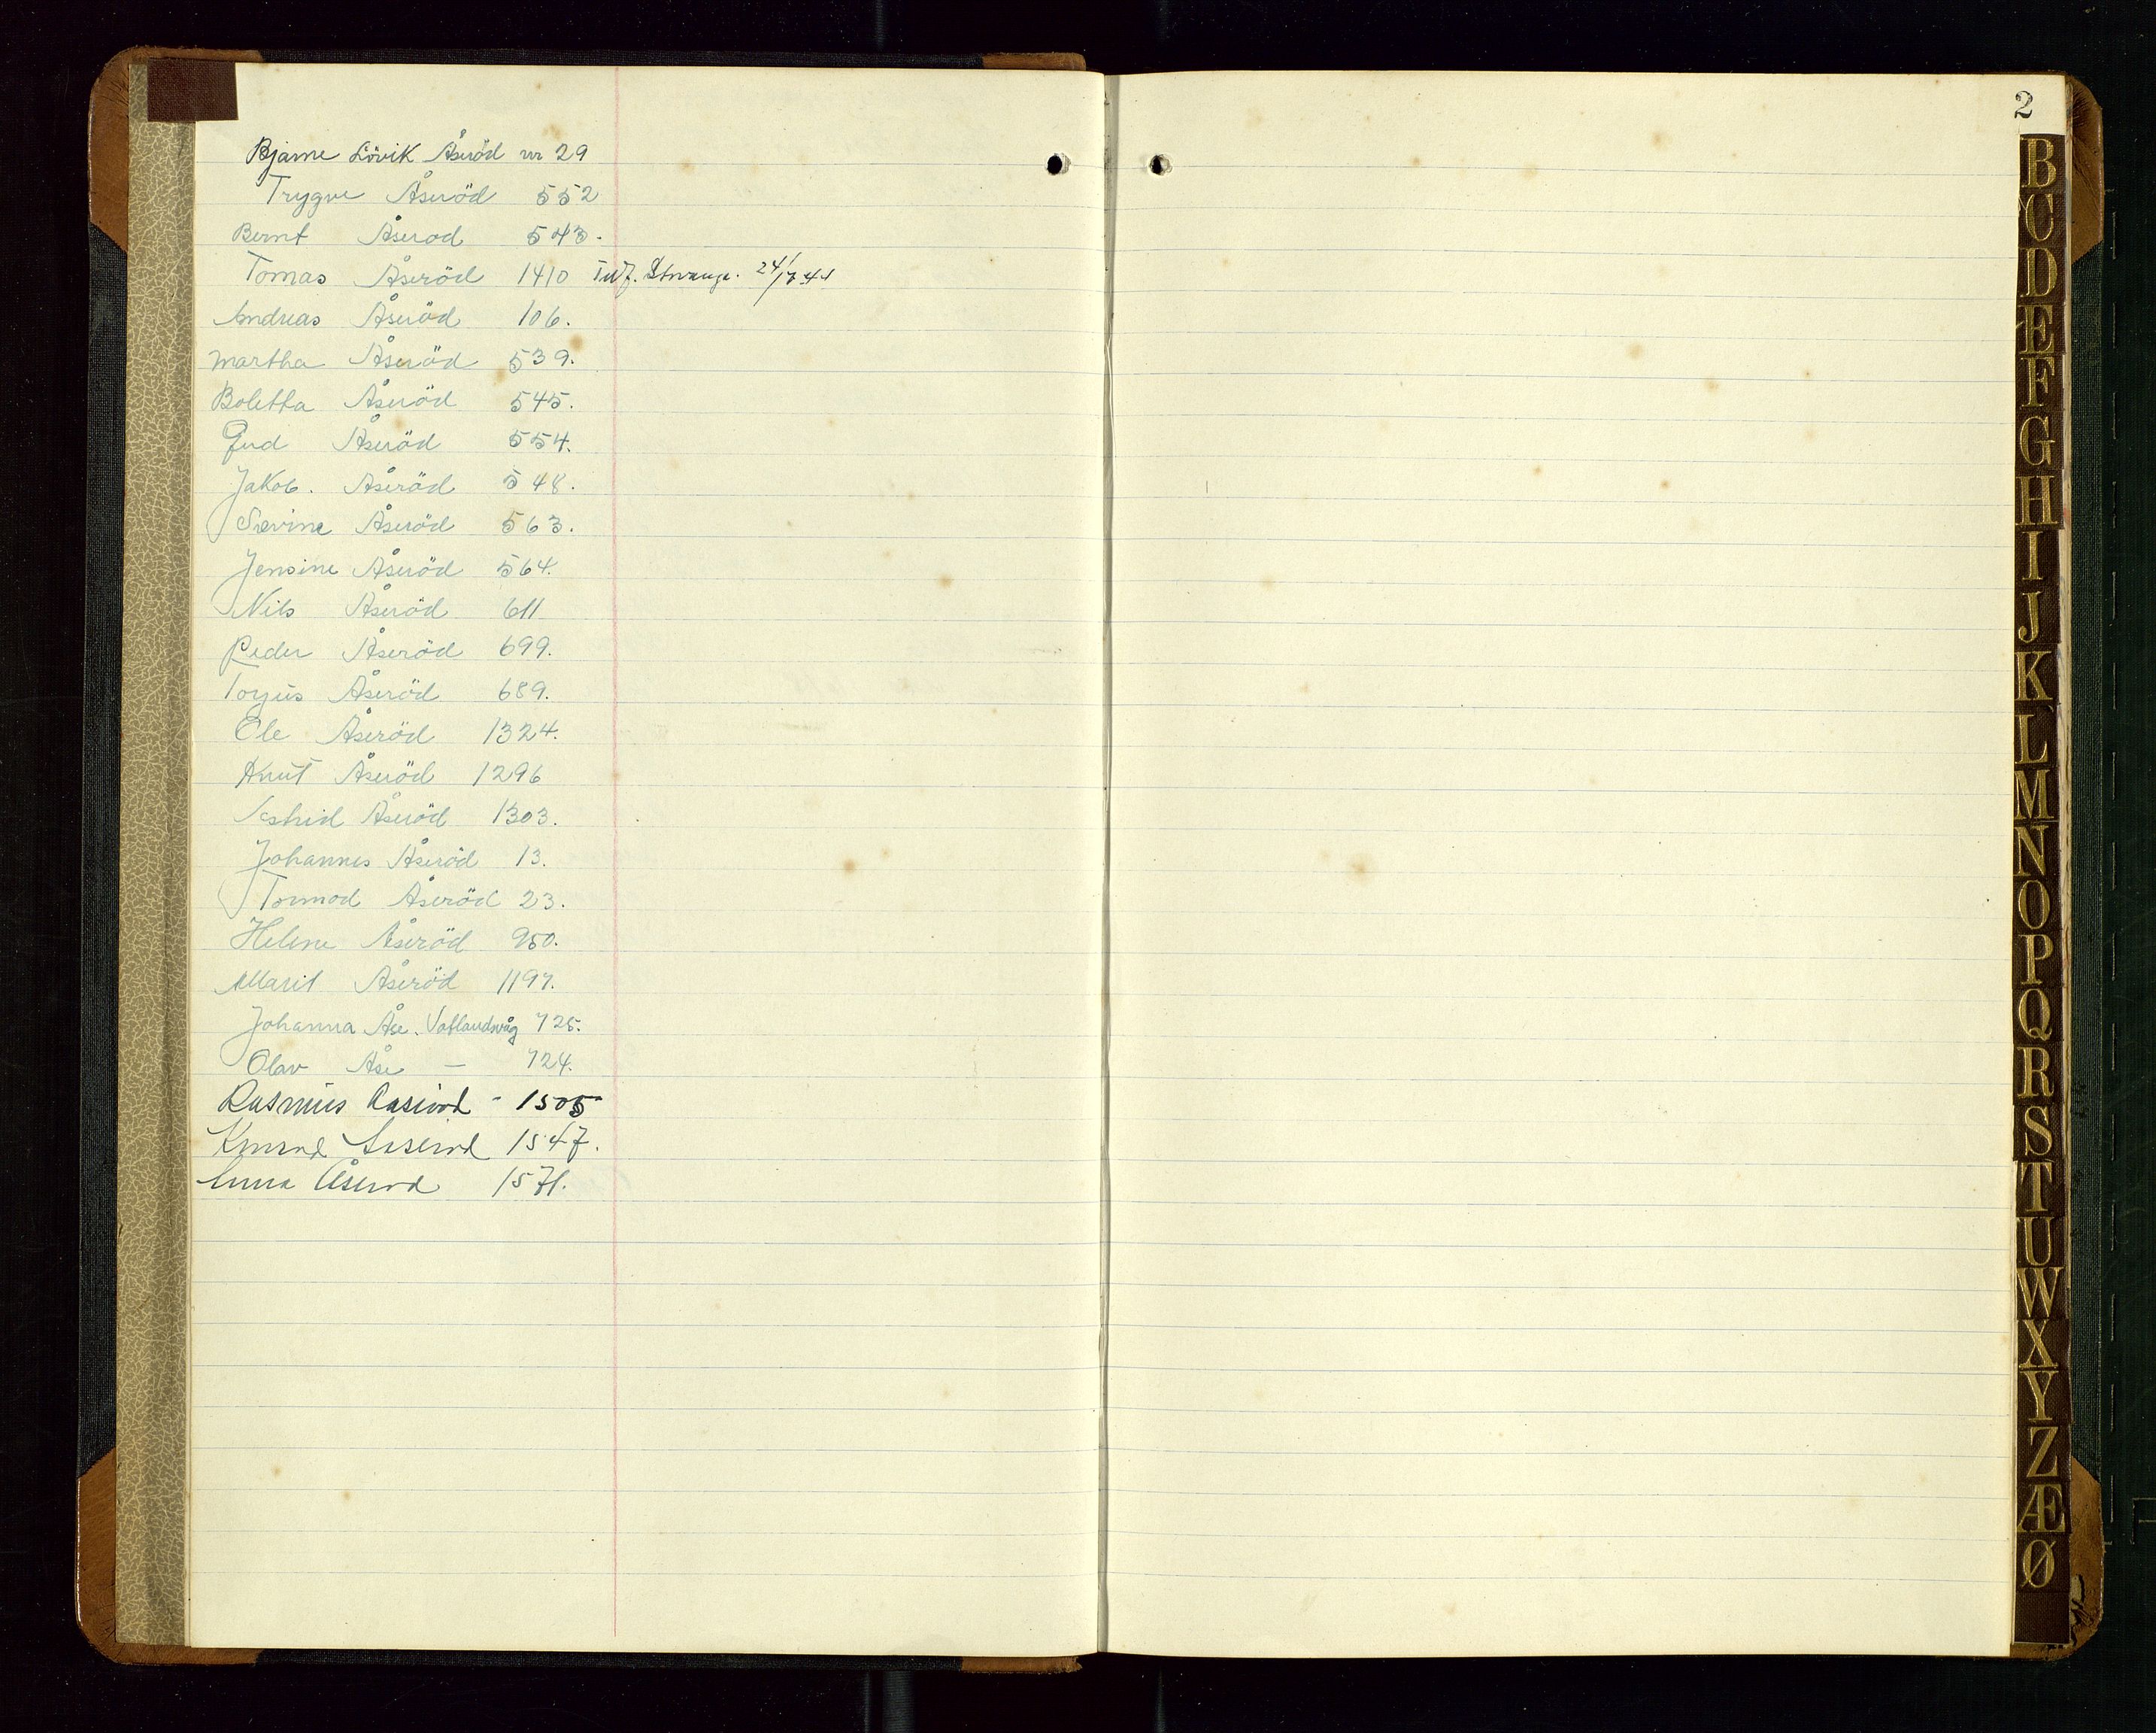 Bjarne Lövik Åseröd nr 29
Trygve Åseröd 552
Bernt Åserod 543.
Tomas Åseröd 1410 Inf. 24/7 44
Andreas Åseröd 106.
Martha Åseröd 539.
Boletta Åseröd 545.
Åseröd 554.
Jakob. Åseröd 548.
Sævine Åseröd 563.
Jensine Åseröd 564.
Nils Åseröd 611
Peder Åseröd 699.
Torjus Åseröd 689.
Ole Åseröd 1324.
Knut Åseröd 1296
Astrid Åseröd 1303.
Johannes Åseröd 13.
Tormod Åseröd 23.
Helene Åseröd 950.
Marit Åseröd 1197.
Johanna Åse. Vatlandsvåg 725.
Olav Åse — 724.
Rasmus Aaserod - 1505
Aaserod 1547.
Anna Åserod 1571.
2
B
C
D
E
F
G
H
I
J
K
L
M
N
O
P
Q
R
S
T
U
W
X
Y
Z
Æ
Ø